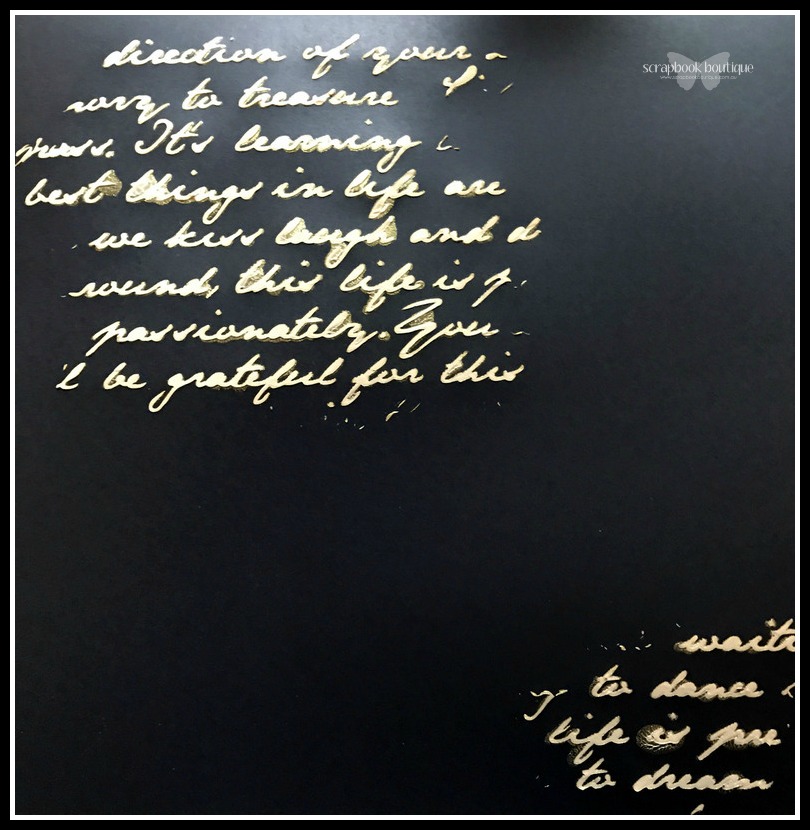 scrapbook boutique
direction of your
ory to treasure
gross. It's learning
best things in life are
we kiss laugh and d
round, this life is p
passionately. You
'l be grateful for this
waiti
to dance
life is pre
to dream